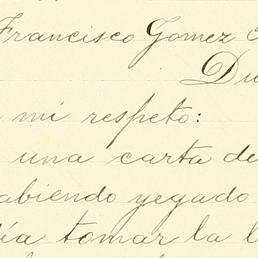 Francisco Gomez
mi respeto:
una carta de
abiendo yegado
ía tomar la l